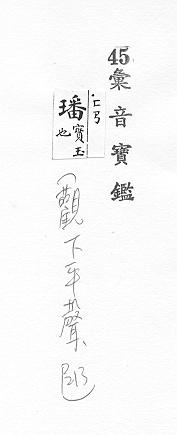 45彙音寶鑑
璠寶玉也
(觀下平聲